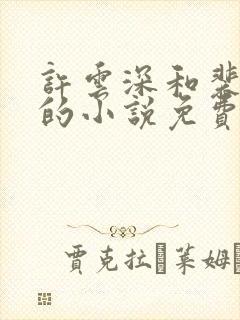 許雲深和裴
的小說免費
賈克拉 萊姆